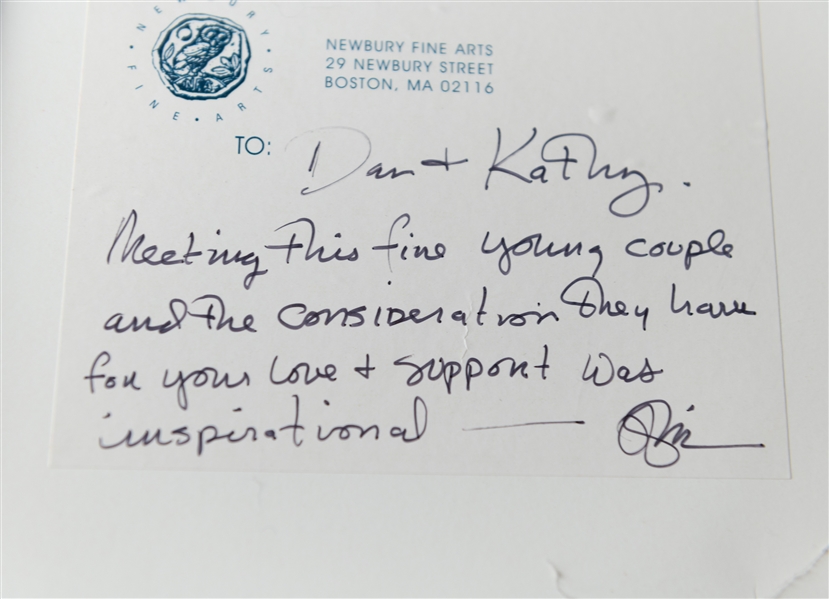 NEWBURY • FINE • ARTS
NEWBURY FINE ARTS
29 NEWBURY STREET
BOSTON, MA 02116
TO: Dan + Kathy.
Meeting This fine young couple
and The consideration They have
for your love + support was
inspirational —